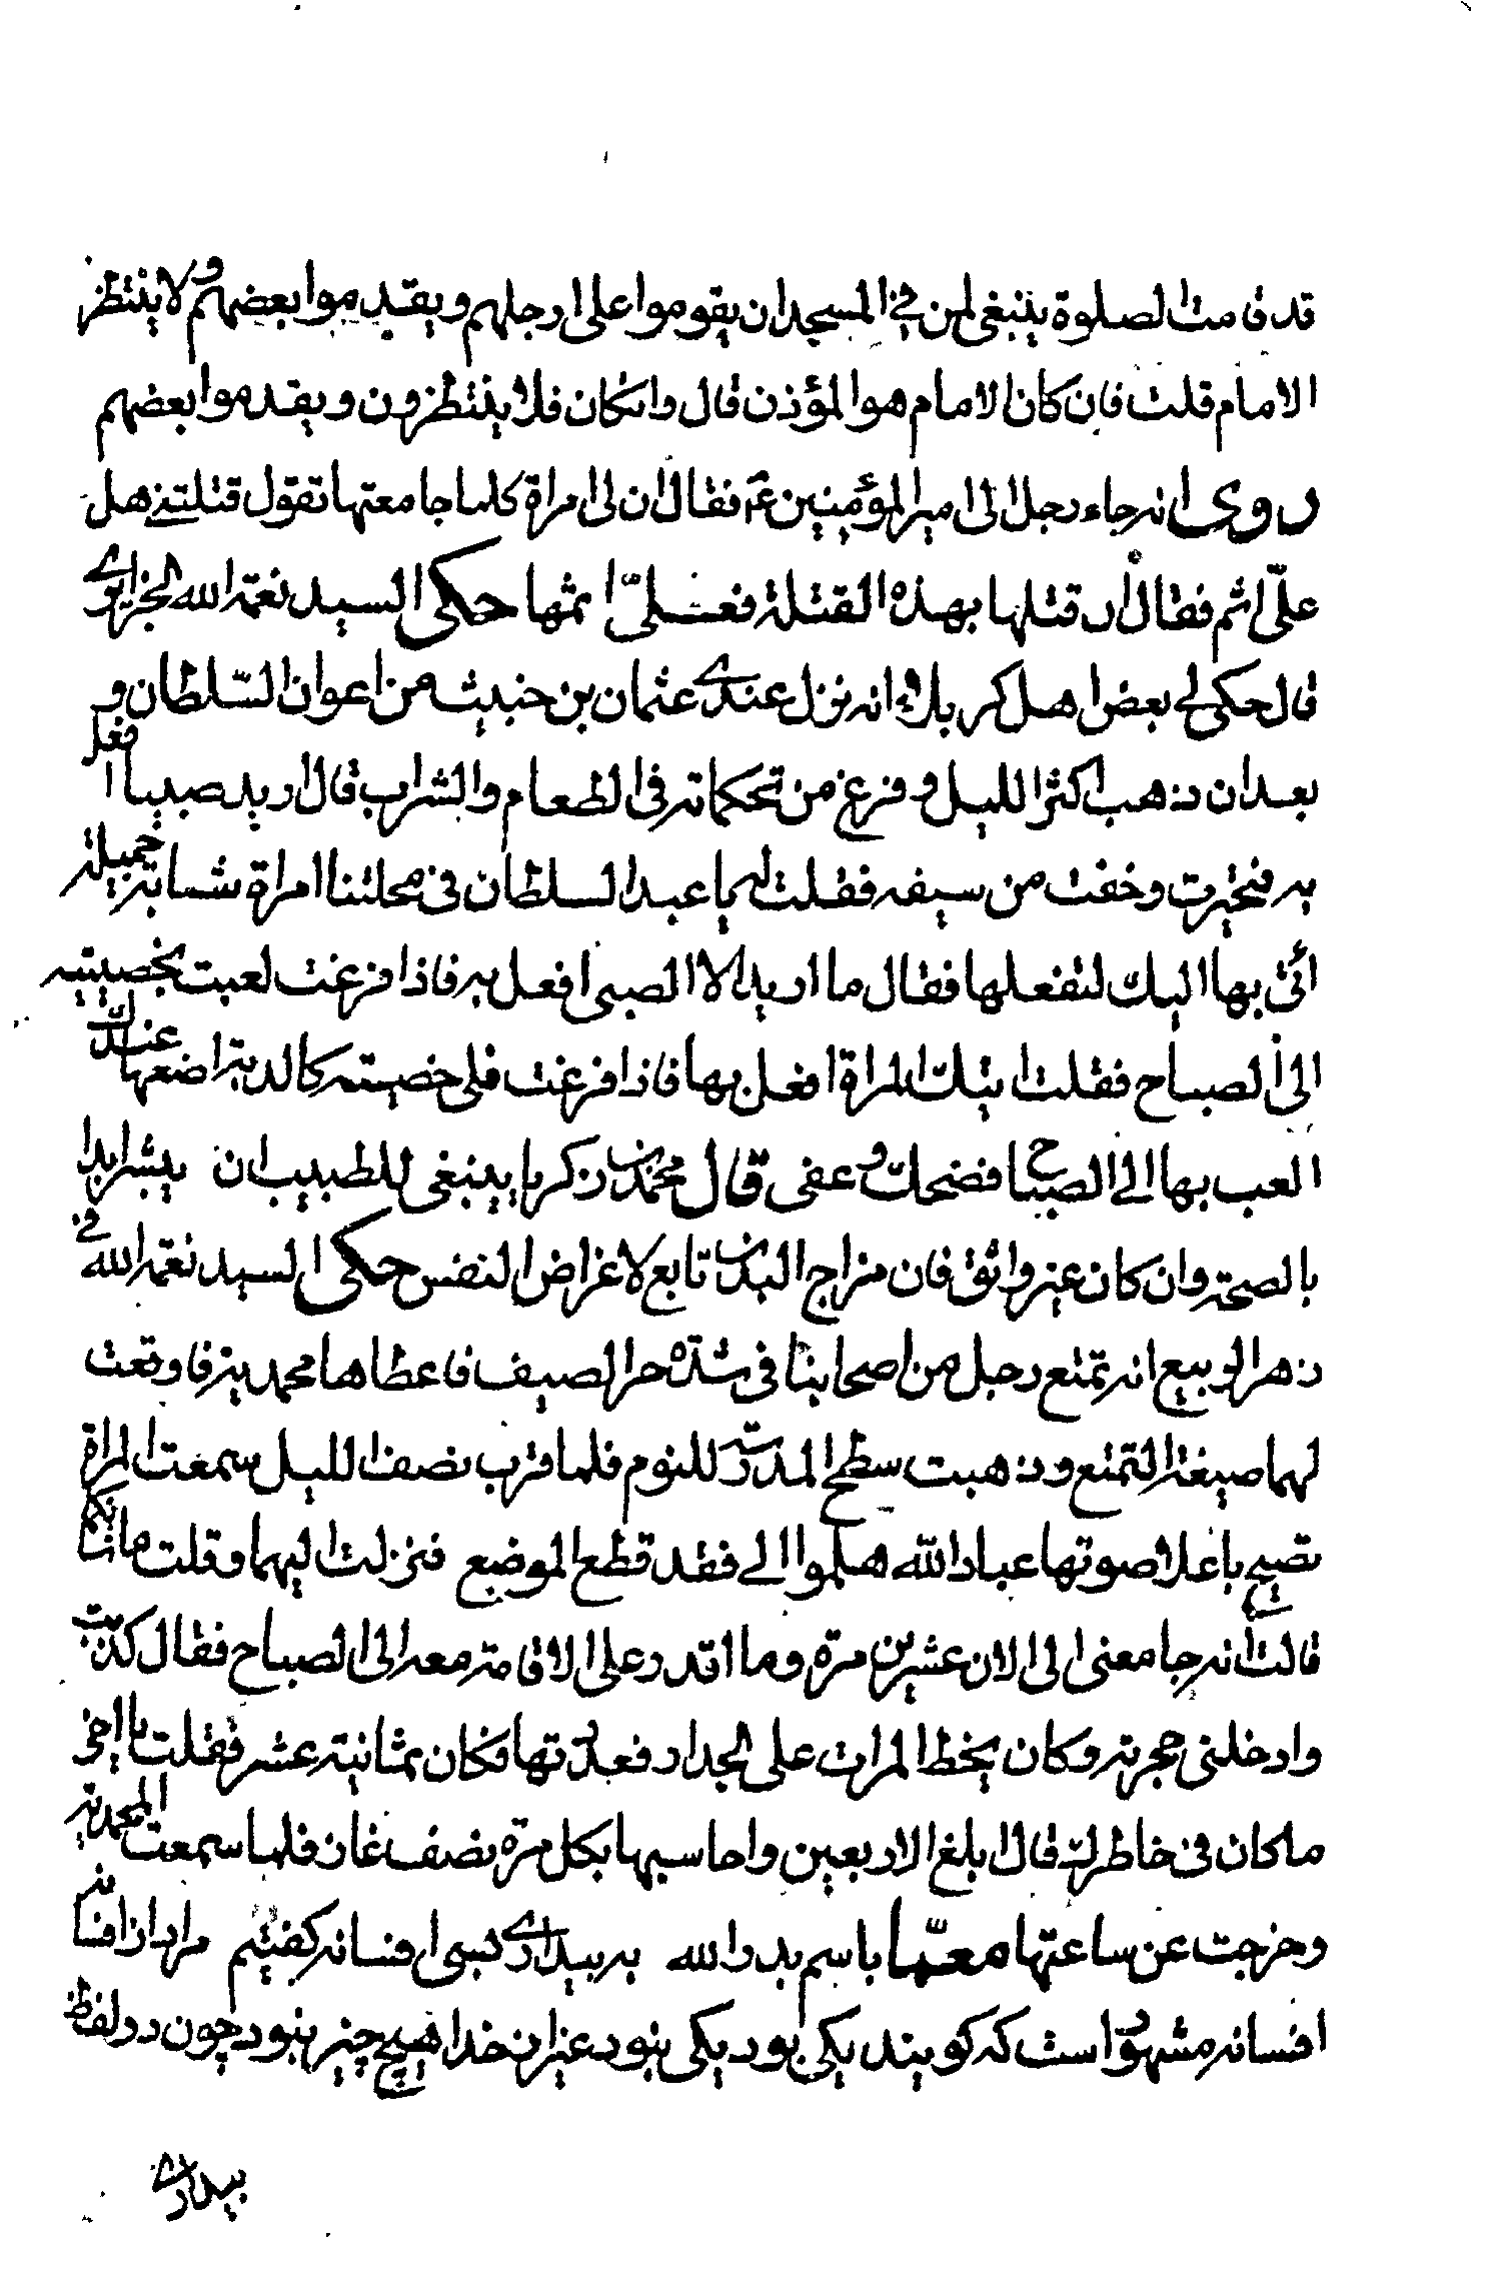 قد قامت الصلوة ينبغي لمن في المسجد ان يقوموا على ارجلهم ويقدموا بعضهم ولا ينتظر
الامام قلت فان كان الامام هو المؤذن قال وان كان فلا ينتظرون ويقدموا بعضهم
روى انه جاء رجل الى امير المؤمنين ع فقال ان لي امراة كلما جامعتها تقول قتلتني هل
علي اثم فقال اقتلها بهذه القتلة فعلي اثمها حكى السيد نعمة الله الجزايري
قال حكى لي بعض اهل كربلاء انه نزل عندي عثمان بن خبيث من اعوان السلطان و
بعد ان ذهب اكثر الليل وفرغ من تحكماته في الطعام والشراب قال اريد صبيا افعل
به فتحيرت وخفت من سيفه فقلت له يا عبد السلطان في محلتنا امراة شابة جميلة
اتى بها اليك لتفعلها فقال ما اريد الا الصبي افعل به فاذا فرغت لعبت بخصيتيه
الى الصباح فقلت ايتك المراة افعل بها فاذا فرغت فلي خصيته كالدبة اضعها عندك
العب بها الى الصباح فضحك وعفى قال محمد بن زكريا ينبغي للطبيب ان يبشر ابدا
بالصحة وان كان غير واثق فان مزاج البدن تابع لاغراض النفس حكى السيد نعمة الله في
زهر الربيع انه تمتع رجل من اصحابنا في شدة حر الصيف فاعطاها محمدية فاوقعت
لهما صيغة التمتع وذهبت سطح المدرسة للنوم فلما قرب نصف الليل سمعت المراة
تصيح باعلا صوتها عباد الله هلموا الي فقد قطع الموضع فنزلت اليهما وقلت ما شانكما
قالت انه جامعني الى الان عشرين مرة وما اقدر على الاقامة معه الى الصباح فقال كذبت
وادخلني حجرته وكان يخط المرات على الجدار فعددتها فكان ثمانية عشر فقلت يا اخي
ما كان في خاطرك قال ابلغ الاربعين واحاسبها بكل مرة نصف غاز فلما سمعت المحمدية
وخرجت عن ساعتها معما باسم بدر الله به بيداري بسي افسانه كفتيم مراد از افسانه
افسانه مشهور است كه كويند يكى بود يكى نبود غير از خدا هيچ چيز نبود چون در لفظ
بيداري